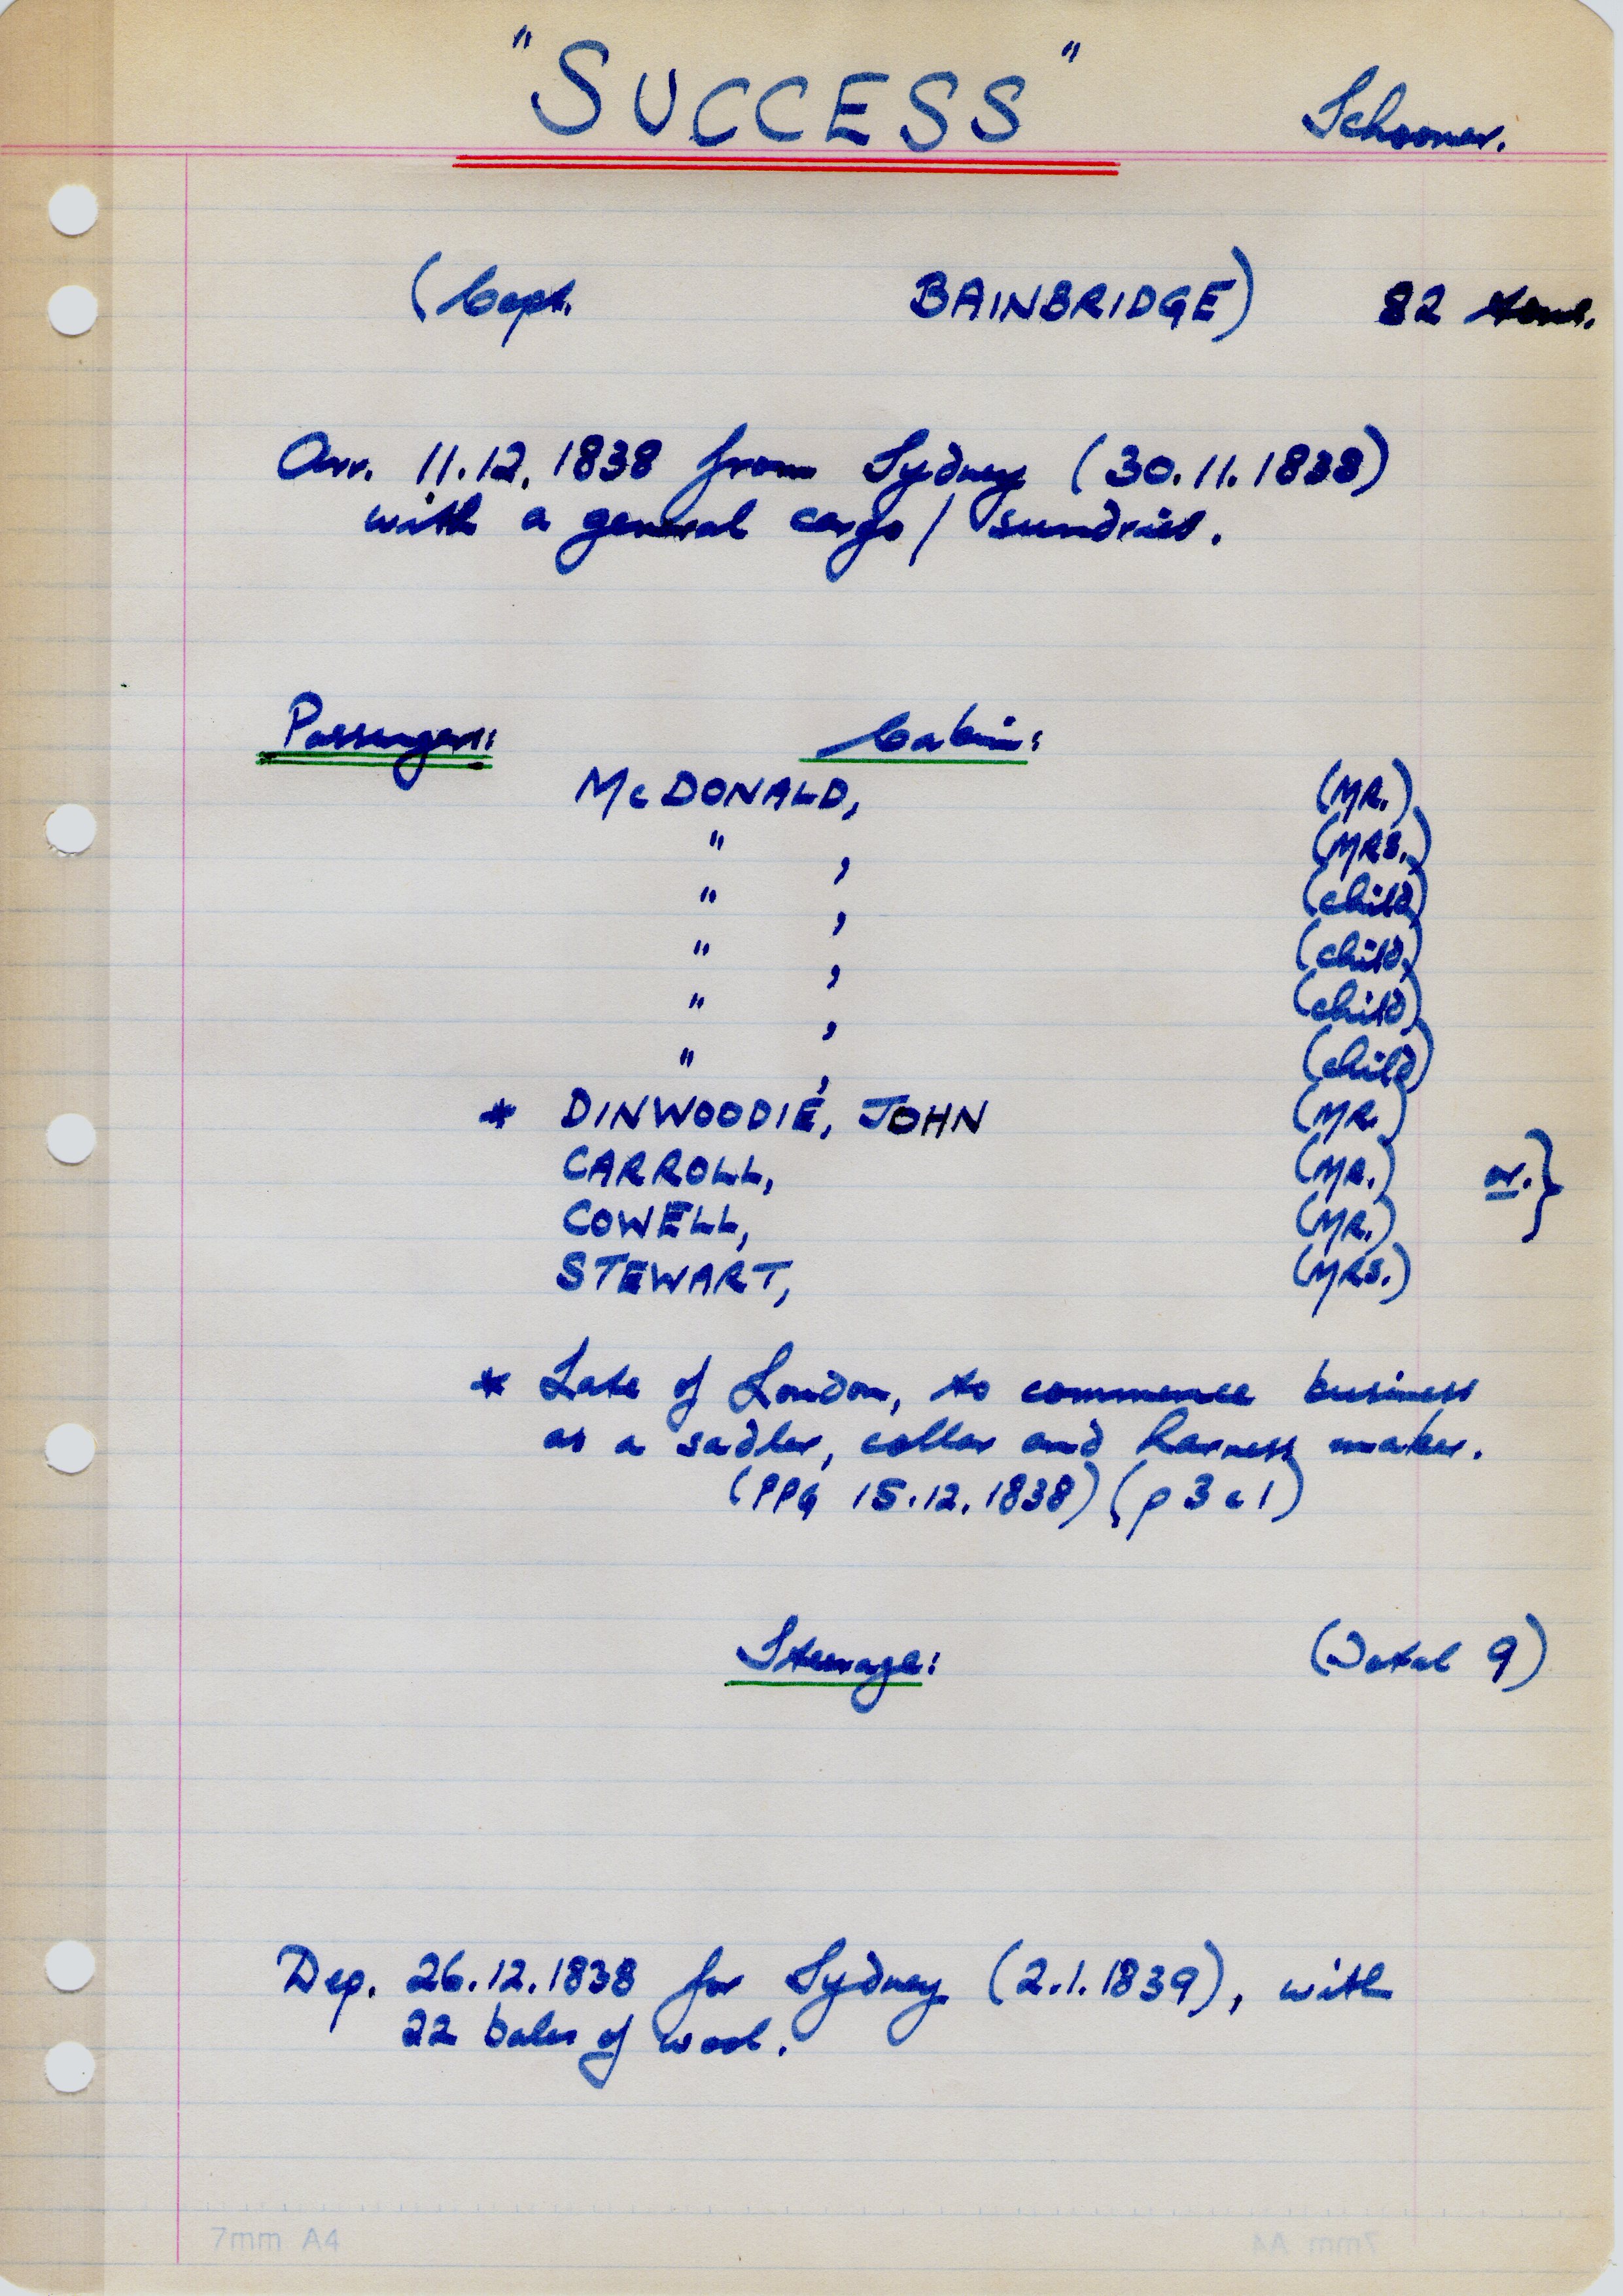 "SUCCESS" Schooner.
(Capt. BAINBRIDGE) 82 tons.
Arr. 11.12.1838 from Sydney (30.11.1838)
with a general cargo/sundries.
Passengers: Cabin:
McDONALD, (MR.)
" , (MRS.)
" , (child)
" , (child)
" , (child)
" , (child)
* DINWOODIE, JOHN (MR.)
CARROLL, (MR.) or. }
COWELL, (MR.)
STEWART, (MRS.)
* Late of London, to commence business
as a sadler, collar and harness maker.
(PPG 15.12.1838) (p3 c1)
Steerage: (Total 9)
Dep. 26.12.1838 for Sydney (2.1.1839), with
22 bales of wool.
7mm A4 7mm A4